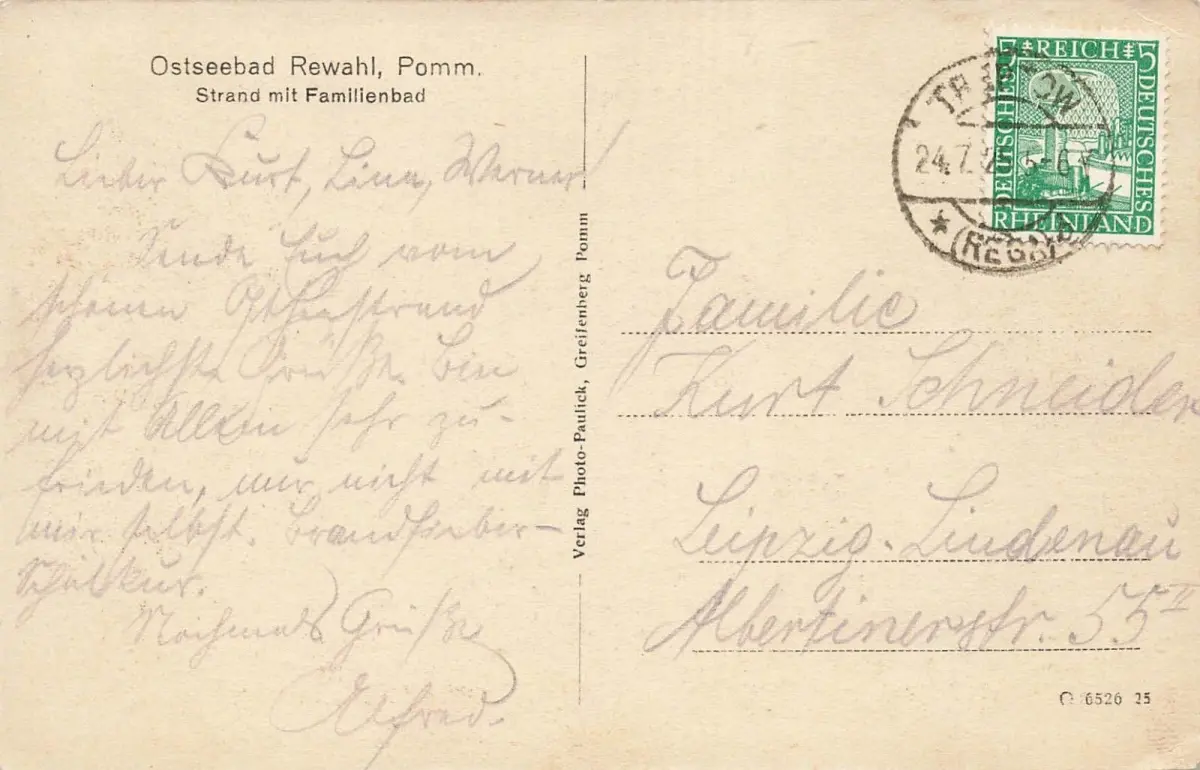 Ostseebad Rewahl, Pomm.
Strand mit Familienbad
Lieber Kurt, Lina, Werner!
Sende Euch vom
schönen Ostseestrand
herzlichste Grüße. Bin
mit Allem sehr zu-
frieden, nur nicht mit
mir selbst.
Nochmals Grüße
Alfred.
Verlag Photo-Paulick, Greifenberg Pomm
DEUTSCHES REICH DEUTSCHES
5 5
RHEINLAND
24.7.
(REGA)
Familie
Kurt Schneider
Leipzig-Lindenau
Albertinerstr. 55 II
6526 25